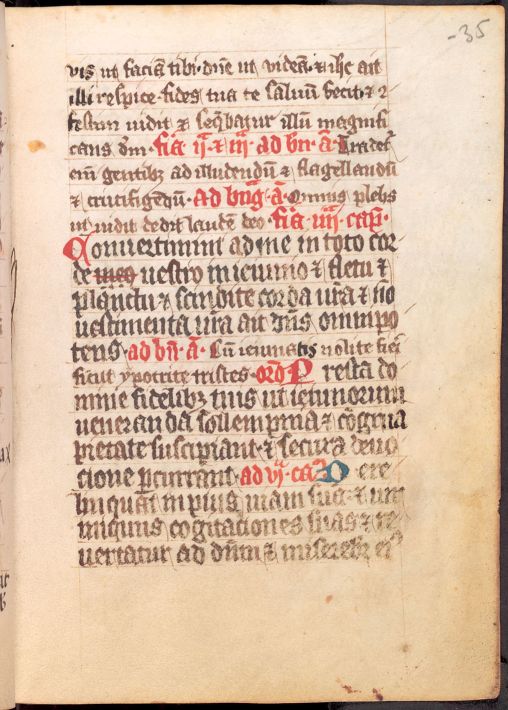 -35
vis ut faciā tibi · dn̄e ut videā · ⁊ ihc̄ ait
illi respice · fides tua te saluū fecit · ⁊ ɔ
festim uidit ⁊ seq̄batur illū magnifi
cans dm̄ · fīa ij · ⁊ iij · ad bn̄ · ā · Tradet᷑
em̄ gentibꝫ ad illudendū ⁊ flagellandū
⁊ crucifigēdū · ad bn̄g · ā · Omnis plebs
ut uidit dedit laudē deo · fīa iiij · cap̄ ·
Conuertimini ad me in toto cor
de meo uestro in ieiunio ⁊ fletu ⁊
planctu ⁊ scindite corda ur̄a ⁊ nō
uestimenta ur̄a ait dn̄s omnipo
tens · ad bn̄ · ā · Cū ieiunatis nolite fieri
sicut ypocrite tristes · orō Presta do
mine fidelibꝫ tuis ut ieiuniorum
ueneranda sollempnia ⁊ cōgrua
pietate suscipiant · ⁊ secura deuo
cione ꝑcurrant · ad vj · ca Dere
linquat impius uiam suā · ⁊ uir
iniquus cogitationes suas ⁊ re
uertatur ad dn̄m ⁊ misereb᷑ ei⁹